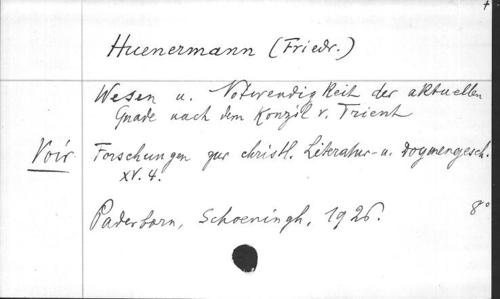 Huenermann (Friedr.)
Wesen u. Notwendigkeit der aktuellen
Gnade nach dem Konzil v. Trient
Voir Forschungen zur christl. Literatur- u. Dogmengesch.
XV. 4.
Paderborn, Schoeningh, 1926. 8°